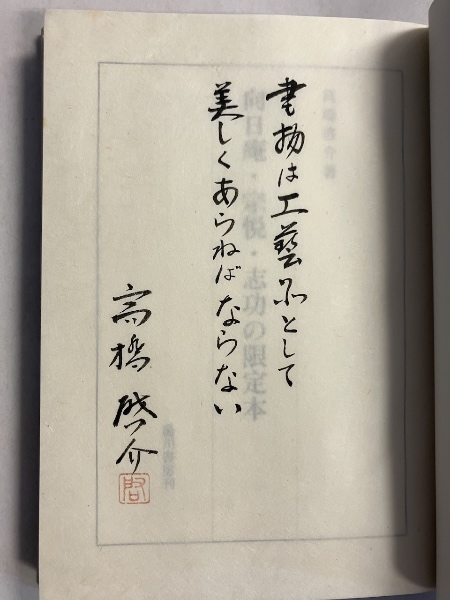 高橋啓介著
書物は工藝品として
向日庵・宗悦・志功の限定本
美しくあらねばならない
高橋啓介
启